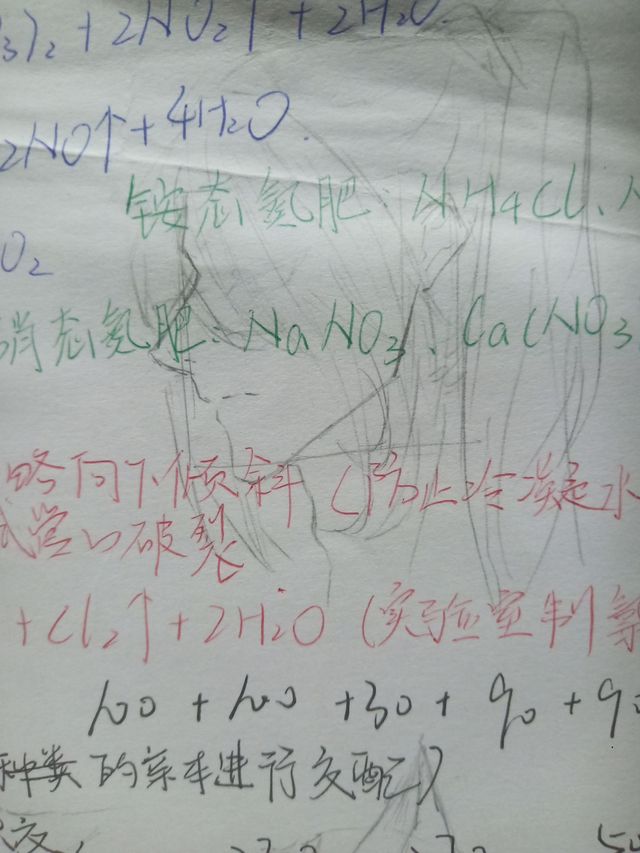 )₂ + 2NO₂↑ + 2H₂O.
2NO↑ + 4H₂O.
铵态氮肥: NH₄Cl、N
O₂
硝态氮肥: NaNO₃、Ca(NO₃
略向下倾斜 (防止冷凝水
试管口破裂
+ Cl₂↑ + 2H₂O (实验室制氯
100 + 100 + 30 + 90 + 90
种类的亲本进行交配)